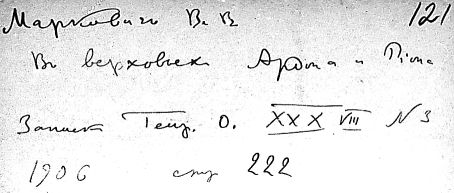 Марковичъ В. В. 121
Въ верховьяхъ Ардона и Ріона
Записки Геогр. О. XXXVIII N 3
1906 стр 222